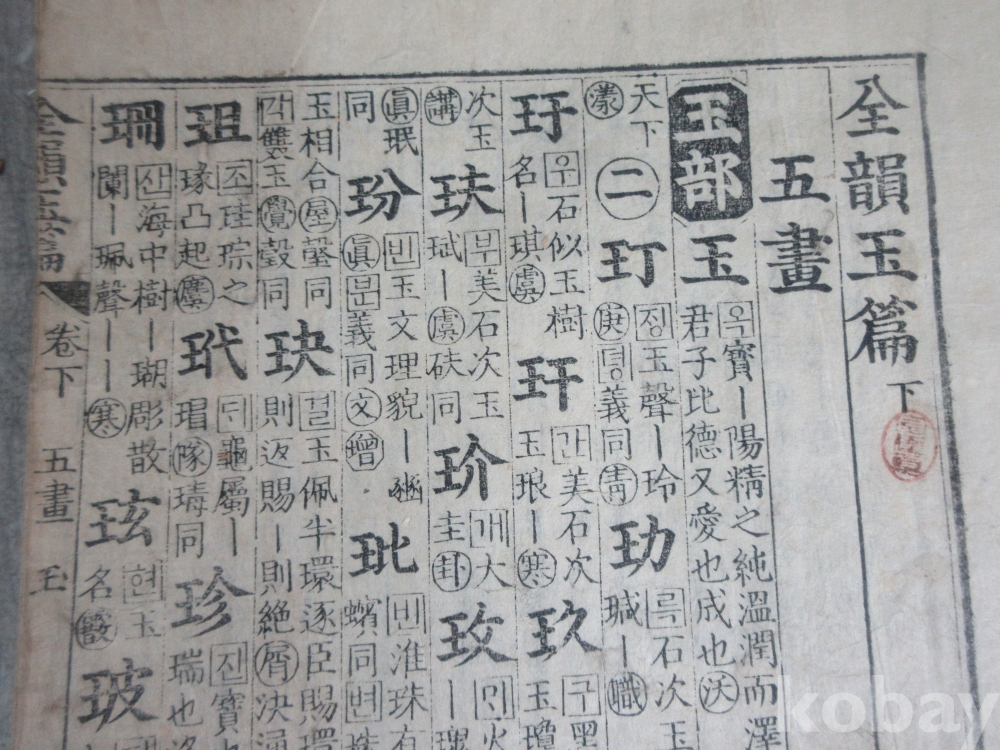 全韻玉篇 下
五畫
玉部 玉 옥 寶丨陽精之純溫潤而澤
君子比德又愛也成也 沃
天下
漾 二 玎 졍 玉聲丨玲
庚 뎡 義同 靑 玏 륵 石次玉
瑊丨 職
玗 우 石似玉樹
名丨琪 虞 玕 간 美石次
玉琅丨 寒 玖 구 黑
玉瓊
次玉
講 玞 부 美石次玉
珷丨 虞 砆同 玠 개 大
圭 卦 玫 민 火
丨瑰
眞 珉
同 玢 빈 玉文理貌丨豳
眞 분 義同 文 璔 玭 빈 淮珠
蠙同 변 珠
玉相合 屋 瑴同
각 雙玉 覺 瑴同 玦 결 玉佩半環逐臣賜環
則返賜丨則絶 屑 決
珇 조 珪琮之
瑑凸起 麌 玳 龜屬丨
瑁 隊 同 珍 진 寶也
瑞也
珊 산 海中樹丨瑚彫散
闌丨珮聲丨丨 寒 玹 현 玉
名 玻
全韻玉篇 卷下 五畫 玉
kobay